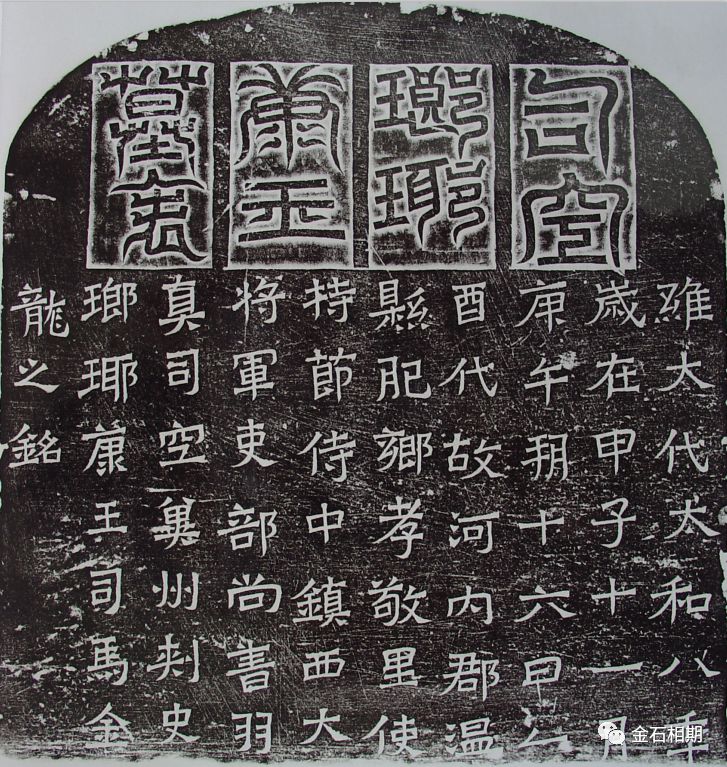 司空
瑯琊
康王
墓表
維大代太和八年
歲在甲子十一月
庚午朔十六日乙
酉代故河內郡溫
縣肥鄉孝敬里使
持節侍中鎮西大
將軍吏部尚書羽
真司空冀州刺史
瑯琊康王司馬金
龍之銘
金石相期